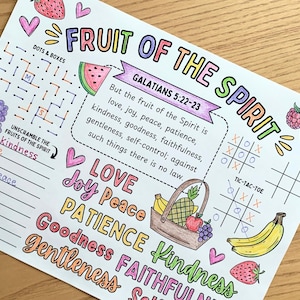 FRUIT OF THE SPIRIT
DOTS & BOXES
GALATIANS 5:22-23
But the fruit of the Spirit is
love, joy, peace, patience,
kindness, goodness, faithfulness,
gentleness, self-control; against
such things there is no law
UNSCRAMBLE THE
FRUITS OF THE SPIRIT
Kindness
TIC-TAC-TOE
LOVE
Joy Peace
PATIENCE
Kindness
Goodness
FAITHFUL
Gentleness
Sel